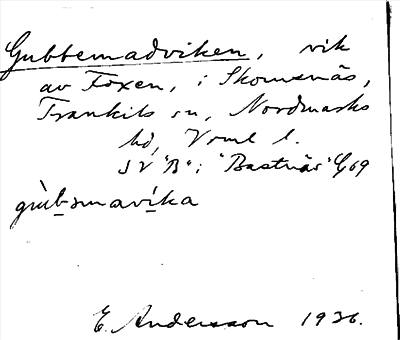 Gubbemadviken, vik
av Foxen, i Skomsnäs,
Trankils sn, Nordmarks
hd, Vrml l.
SV "B" i "Bastnäs" G69
gùbəmavíka
E. Andersson 1926.